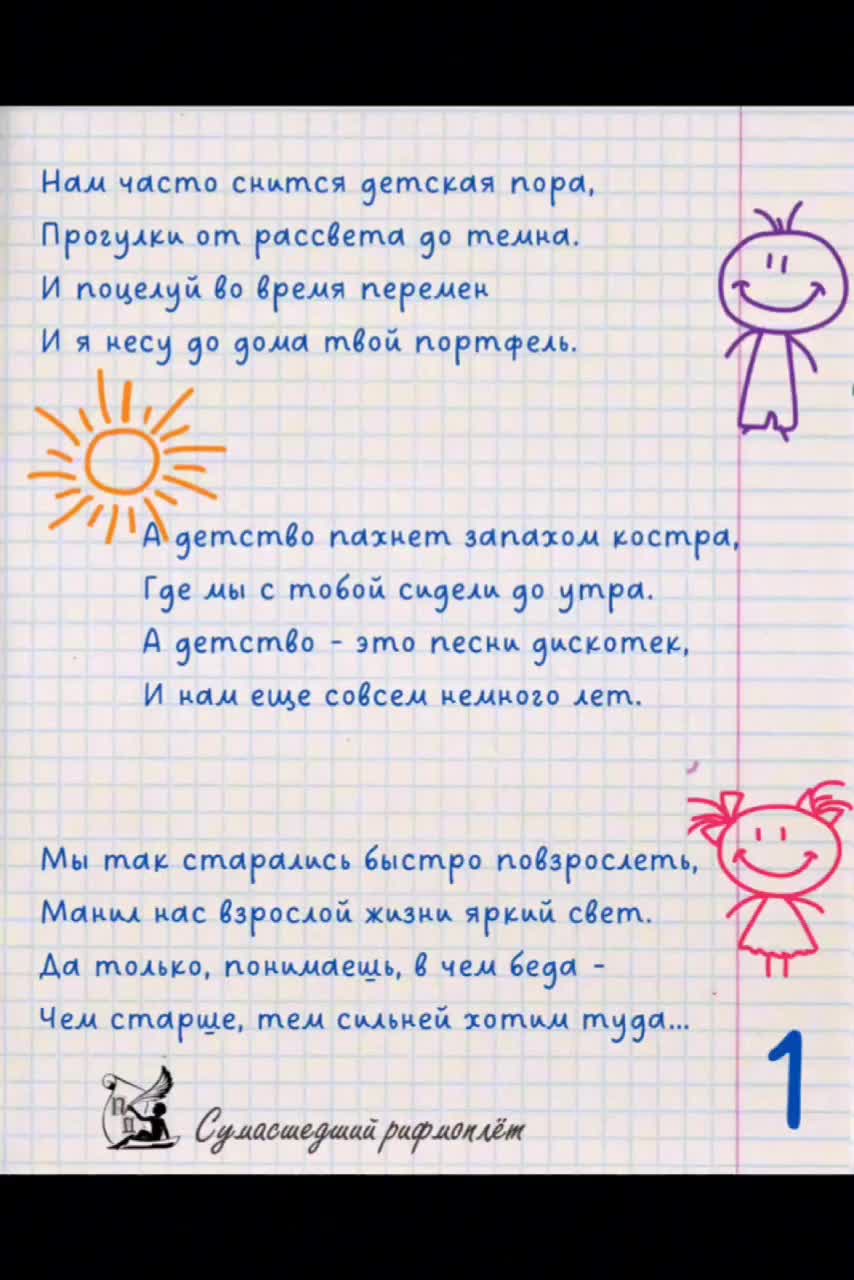 Нам часто снится детская пора,
Прогулки от рассвета до темна.
И поцелуй во время перемен
И я несу до дома твой портфель.
А детство пахнет запахом костра,
Где мы с тобой сидели до утра.
А детство - это песни дискотек,
И нам еще совсем немного лет.
Мы так старались быстро повзрослеть,
Манил нас взрослой жизни яркий свет.
Да только, понимаешь, в чем беда -
Чем старше, тем сильней хотим туда...
1
П
Д
Сумасшедший рифмоплёт